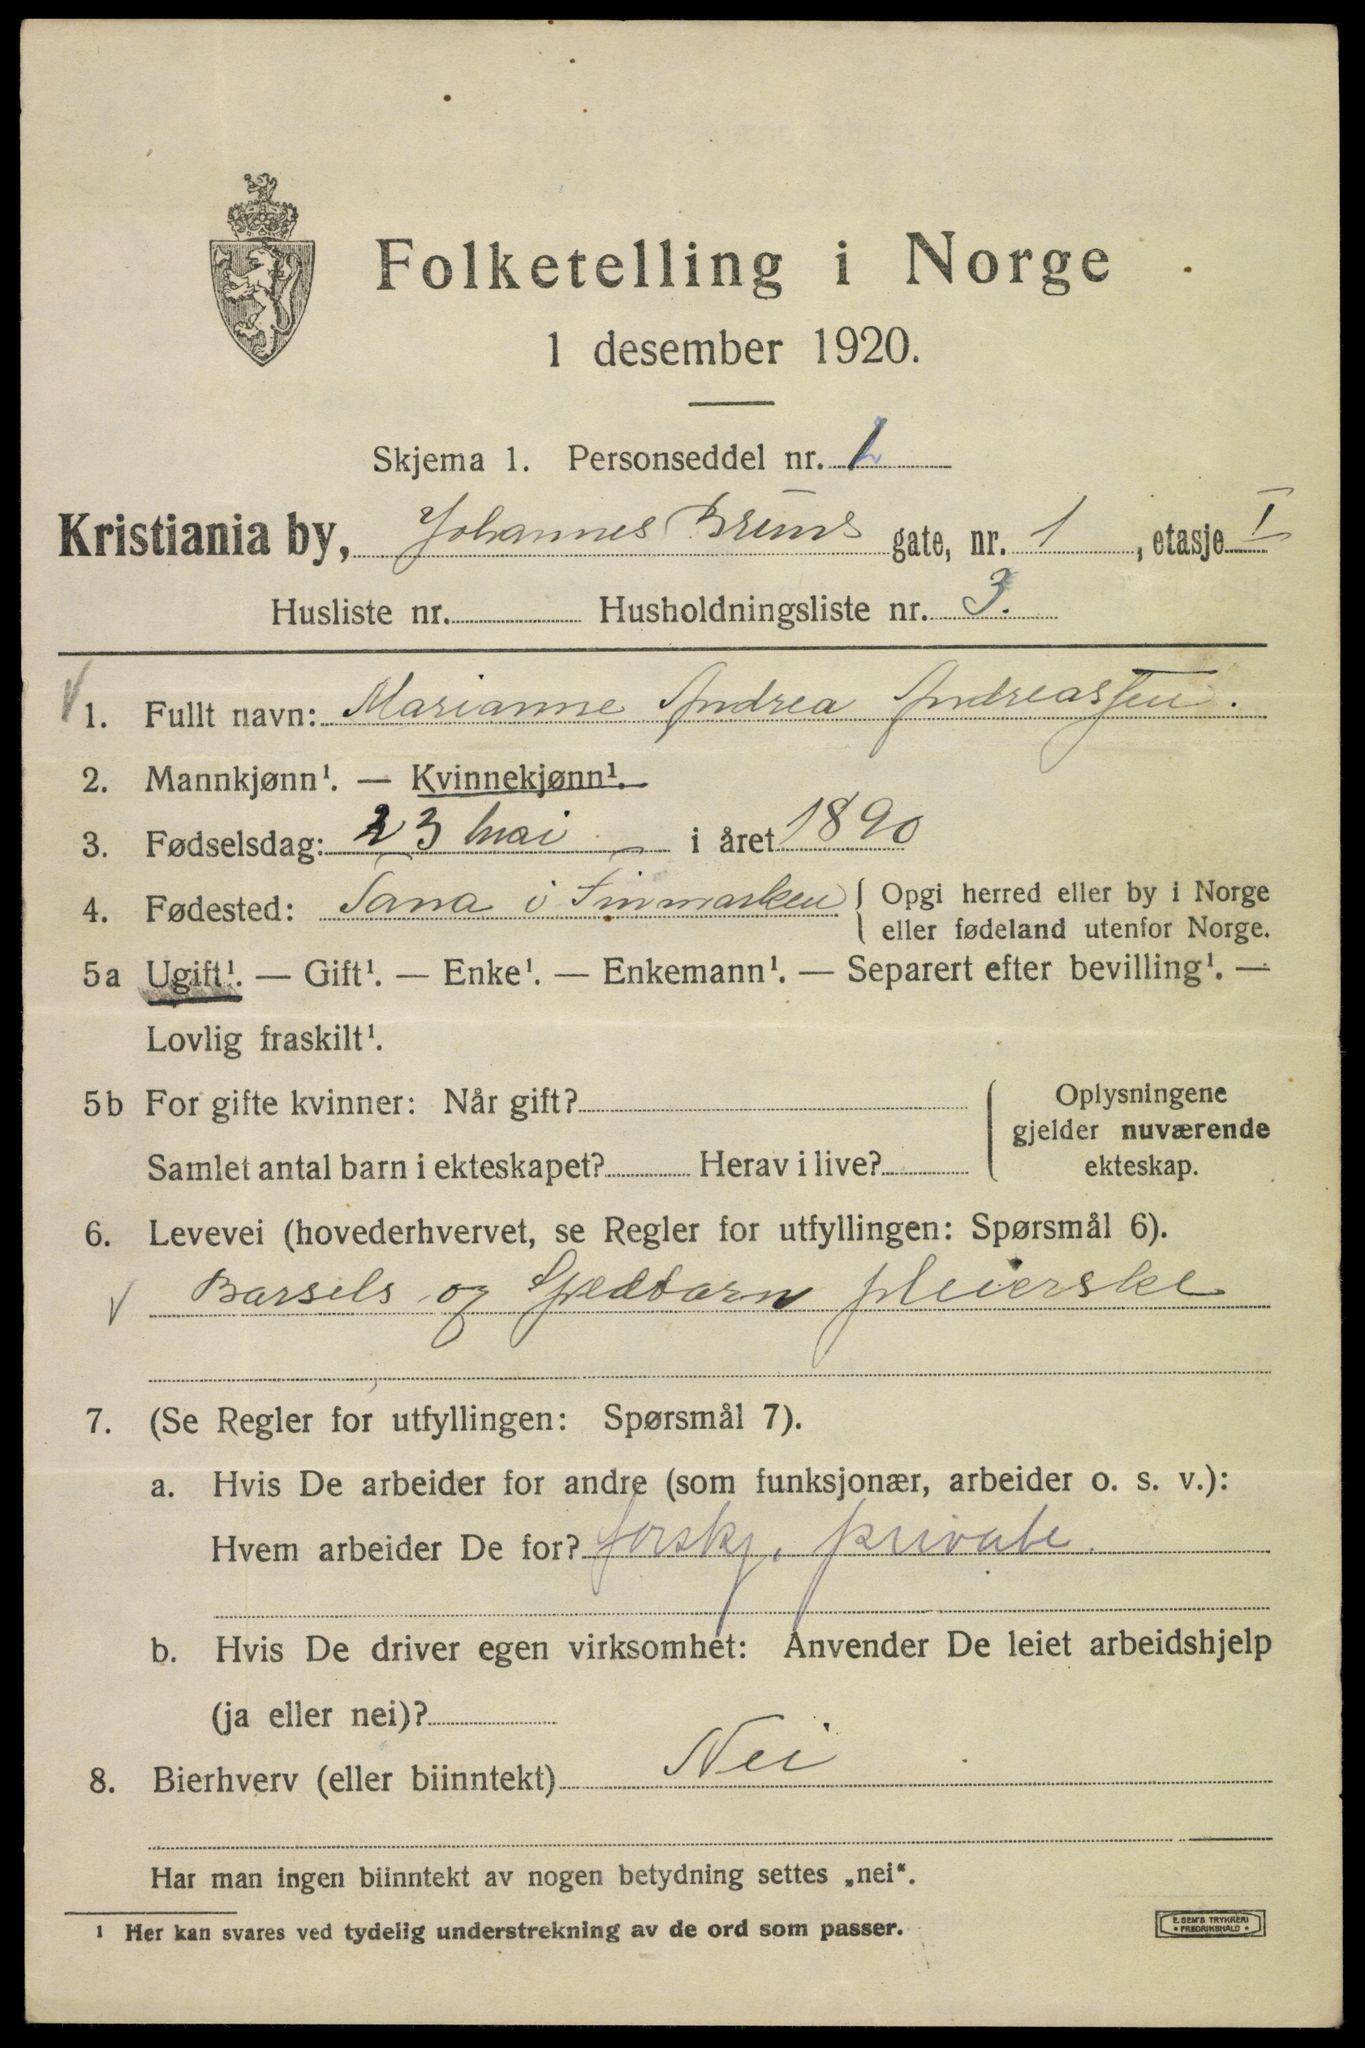 Folketelling i Norge
1 desember 1920.
Skjema 1. Personseddel nr.
Kristiania by, Johannes Bruns gate, nr. 1, etasje I
Husliste nr. Husholdningsliste nr. 3.
1. Fullt navn: Marianne Andrea Andreassen.
2. Mannkjønn¹. — Kvinnekjønn¹.
3. Fødselsdag: 23 mai i året 1890
4. Fødested: Tana i Finmarken { Opgi herred eller by i Norge
eller fødeland utenfor Norge.
5a Ugift¹. — Gift¹. — Enke¹. — Enkemann¹. — Separert efter bevilling¹. —
Lovlig fraskilt¹.
5b For gifte kvinner: Når gift?
Samlet antal barn i ekteskapet? Herav i live?
Oplysningene
gjelder nuværende
ekteskap.
6. Levevei (hovederhvervet, se Regler for utfyllingen: Spørsmål 6).
Barsels og Spedbarn pleierske
7. (Se Regler for utfyllingen: Spørsmål 7).
a. Hvis De arbeider for andre (som funksjonær, arbeider o. s. v.):
Hvem arbeider De for? forskj. private.
b. Hvis De driver egen virksomhet: Anvender De leiet arbeidshjelp
(ja eller nei)?
8. Bierhverv (eller biinntekt) Nei
Har man ingen biinntekt av nogen betydning settes „nei“.
¹ Her kan svares ved tydelig understrekning av de ord som passer.
E. SEM'S TRYKKERI
FREDRIKSHALD